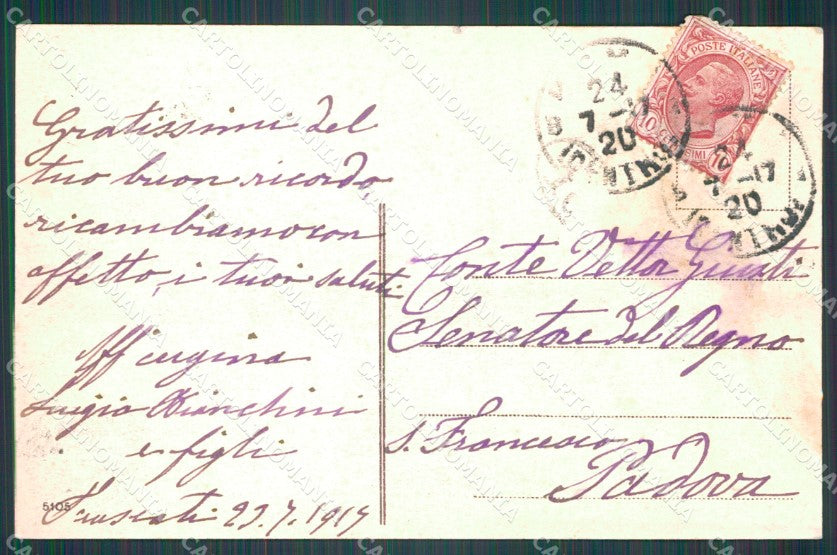 Gratissimi del
tuo buon ricordo,
ricambiamo con
affetto, i tuoi saluti
Aff cugina
Luigia Bianchini
e figli
23.7.1917
5105
POSTE ITALIANE
10
24
7-17
20
7-17
20
Conte Vettor Giusti
Senatore del Regno
S. Francesco
Padova
CARTOLINOMANIA